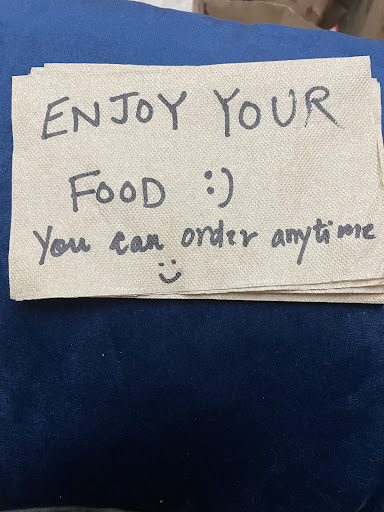 ENJOY YOUR
FOOD :)
You can order anytime
:)